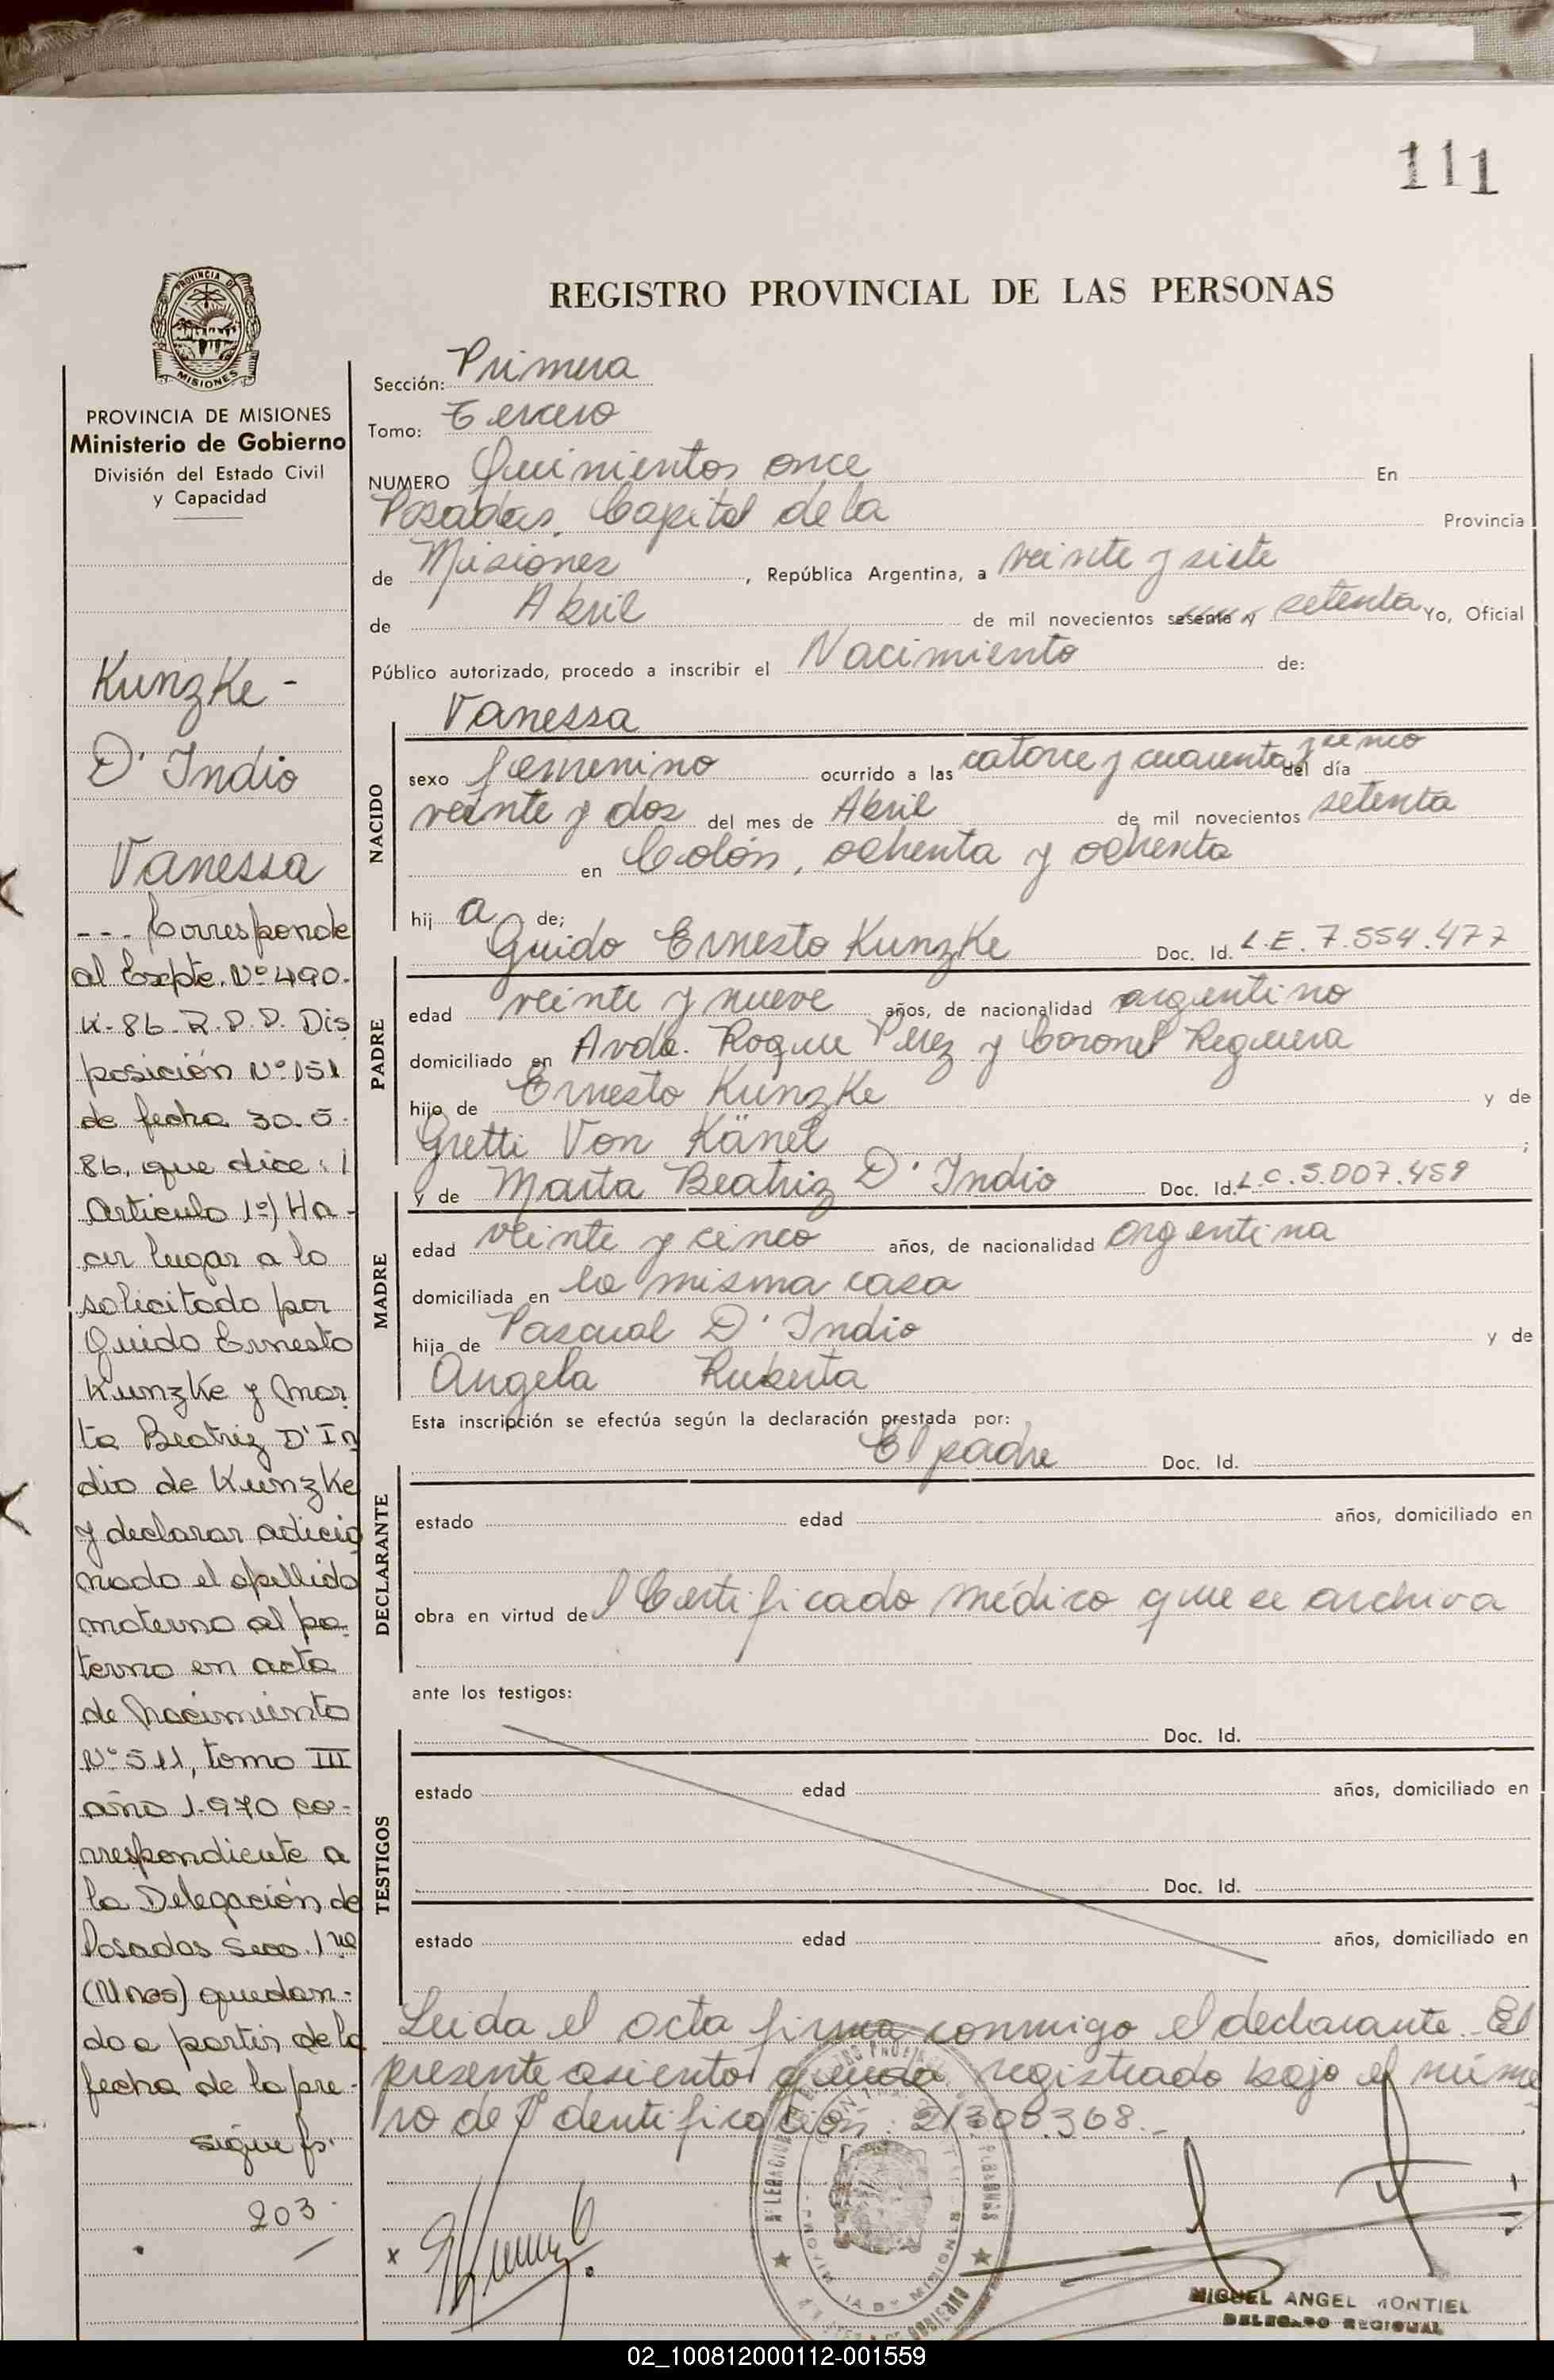 111
REGISTRO PROVINCIAL DE LAS PERSONAS
PROVINCIA DE MISIONES
PROVINCIA DE MISIONES
Ministerio de Gobierno
División del Estado Civil
y Capacidad
Kunzke -
D' Indio
Vanessa
--- Corresponde
al Expte. Nº 490-
K-86-R.P.P. Dis
posición Nº 151
de fecha 30.5.
86, que dice:
Artículo 1º) Ha-
cer lugar a lo
solicitado por
Guido Ernesto
Kunzke y Mar
ta Beatriz D'In
dio de Kunzke
y declarar adicio
nado el apellido
materno al pa
terno en acta
de Nacimiento
Nº 511, tomo III
año 1.970 co-
rrespondiente a
la Delegación de
Posadas Secc. 1ra
quedan-
do a partir de la
fecha de la pre-
sigue fs.
203
Sección: Primera
Tomo: Tercero
NUMERO Quinientos once En
Posadas, Capital de la Provincia
de Misiones, República Argentina, a veinte y siete
de Abril de mil novecientos sesenta y setenta Yo, Oficial
Público autorizado, procedo a inscribir el Nacimiento de:
NACIDO
Vanessa
sexo femenino ocurrido a las catorce y cuarenta y cinco del día
veinte y dos del mes de Abril de mil novecientos setenta
en Colón, ochenta y ochenta
hij a de;
PADRE
Guido Ernesto Kunzke Doc. Id. L.E. 7.554.477
edad veinte y nueve años, de nacionalidad argentino
domiciliado en Avda. Roque Perez y Coronel Reguera
hijo de Ernesto Kunzke y de
Gretti Von Känel ;
MADRE
y de Marta Beatriz D' Indio Doc. Id. L.C. 5.007.459
edad veinte y cinco años, de nacionalidad argentina
domiciliada en la misma casa
hija de Pascual D' Indio y de
Angela Ruberta
Esta inscripción se efectúa según la declaración prestada por:
DECLARANTE
El padre Doc. Id.
estado edad años, domiciliado en
obra en virtud de l Certificado médico que se archiva
ante los testigos:
TESTIGOS
Doc. Id.
estado edad años, domiciliado en
Doc. Id.
estado edad años, domiciliado en
Leida el acta firma conmigo el declarante. El
presente asiento queda registrado bajo el núme
ro de Identificación: 21.308.368.-
x
MIGUEL ANGEL MONTIEL
DELEGADO REGIONAL
02_100812000112-001559